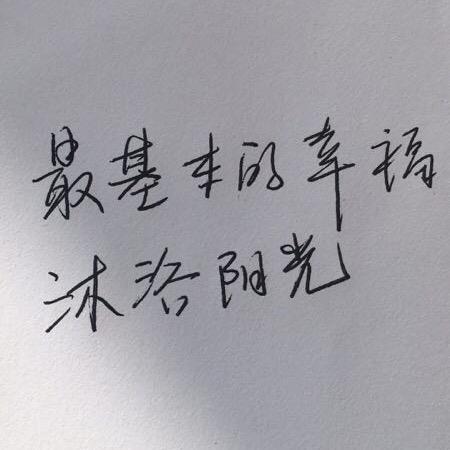 最基本的幸福
沐浴阳光